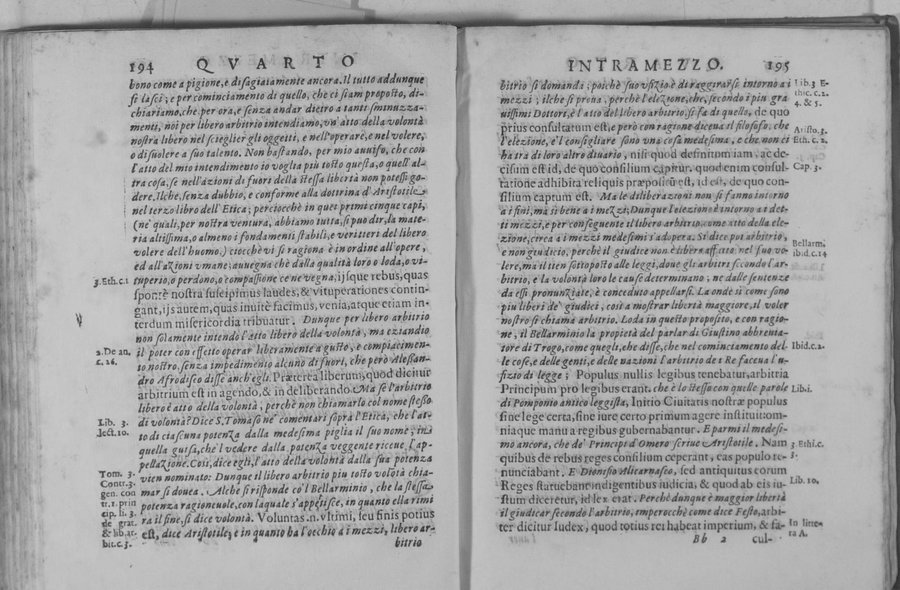 194 QVARTO
bono come a pigione, e disagiatamente ancora. Il tutto addunque
si lasci, e per cominciamento di quello, che ci siam proposto, di-
chiariamo, che per ora, e senza andar dietro a tanti sminuzza-
menti, noi per libero arbitrio intendiamo, vn'atto della volontà
nostra libero nel scieglier gli oggetti, e nell'operare, e nel volere,
o disuolere a suo talento. Non bastando, per mio auuiso, che con
l'atto del mio intendimento io voglia più tosto questa, o quell'al-
tra cosa, se nell'azioni di fuori della stessa libertà non potessi go-
dere. Ilche, senza dubbio, e conforme alla dottrina d'Aristotile
nel terzo libro dell'Etica; perciocchè in quei primi cinque capi,
(ne' quali, per nostra ventura, abbiamo tutta, si può dir, la mate-
ria altissima, o almeno i fondamenti stabili, e veritieri del libero
volere dell'huomo.) ciocchè vi si ragiona è in ordine all'opere,
ed all'azioni vmane; auuegna chè dalla qualità loro o loda, o vi-
3. Eth. c. 1 tuperio, o perdono, o compassione ce ne vegna, ijsque rebus, quas
sponte nostra suscipimus laudes, & vituperationes contin-
gant, ijs autem, quas inuitè facimus, venia, atque etiam in-
terdum misericordia tribuatur. Dunque per libero arbitrio
non solamente intendo l'atto libero della volontà, ma eziandio
2. De an. il poter con effetto operar liberamente a gusto, e compiacimen-
c. 26. to nostro, senza impedimento alcuno di fuori, che però Alessan-
dro Afrodiseo disse anch'egli. Præterea liberum, quod dicitur
arbitrium est in agendo, & in deliberando. Ma se l'arbitrio
libero è atto della volontà, perchè non chiamarlo col nome stesso
Lib. 3. di volontà? Dice S. Tomaso ne' comentari sopra l'Etica, che l'at-
lect. 10. to di ciascuna potenza dalla medesima piglia il suo nome; in
quella guisa, che l'vedere dalla potenza veggente riceue l'ap-
pellazione. Così, dice egli, l'atto della volontà dalla sua potenza
Tom. 3. vien nominato: Dunque il libero arbitrio piu tosto volōtà chia-
Contr. 3. mar si douea. Alchè si risponde co'l Bellarminio, che la stessa
gen. con potenza ragioneuole, con laquale s'appetisce, in quanto ella rimi
tr. 1. prin ra il fine, si dice volontà. Voluntas .n. vltimi, seu finis potius
cip. li. 3. est, dice Aristotile, e in quanto ha l'occhio a i mezzi, libero ar-
de grat.
& lib. ar-
bit. c. 3. bitrio
INTRAMEZZO. 195
bitrio si domanda; poichè suo vfizio è di raggirarsi intorno a i Lib. 3. E-
mezzi; ilche si proua, perchè l'elezione, che, secondo i piu gra thic. c. 2.
uissimi Dottori, è l'atto del libero arbitrio, si fa di quello, de quo 4. & 5.
prius consultatum est, e però con ragione diceua il filosofo, che Aristo. 3.
l'elezione, e'l consigliare sono vna cosa medesima, e che non ci Eth. c. 2.
ha tra di loro altro diuario, nisi quod definitum iam, ac de-
cisum est id, de quo consilium capitur. quod enim consul- Cap. 3.
tatione adhibita reliquis præpositū est, id est, de quo con-
silium captum est. Ma le diliberazioni non si fanno intorno
a i fini, ma sì bene a i mezzi; Dunque l'elezione è intorno a i det-
ti mezzi, e per conseguente il libero arbitrio, come atto della ele-
zione, circa a i mezzi medesimi s'adopera. Si dice poi arbitrio,
e non giudicio, perchè il giudice non è libero affatto nel suo vo- Bellarm.
lere, ma il tien sottoposto alle leggi, doue gli arbitri secondo l'ar- ibid. c. 14
bitrio, e la volontà loro le cause determinano, ne dalle sentenze
da essi pronunziate, è conceduto appellarsi. La onde sì come sono
piu liberi de' giudici, così a mostrar libertà maggiore, il voler
nostro si chiama arbitrio. Loda in questo proposito, e con ragio-
ne, il Bellarminio la propietà del parlar di Giustino abbreuia-
tore di Trogo, come quegli, che disse, che nel cominciamento del Ibid. c. 2.
le cose, e delle genti, e delle nazioni l'arbitrio de i Re faceua l'u-
fizio di legge; Populus nullis legibus tenebatur, arbitria
Principum pro legibus erant. che è lo stesso con quelle parole Lib. i.
di Pomponio antico leggista, Initio Ciuitatis nostræ populus
sine lege certa, sine iure certo primum agere instituit: om-
niaque manu a regibus gubernabantur. E parmi il medesi-
mo ancora, che de' Principi d'Omero scriue Aristotile. Nam 3. Ethi. c.
quibus de rebus reges consilium ceperant, eas populo re- 3.
nunciabant. E Dionisio Alicarnaseo, sed antiquitus eorum
Reges statuebant indigentibus iudicia, & quod ab eis iu- Lib. 10.
stum diceretur, id lex erat. Perchè dunque è maggior libertà
il giudicar secondo l'arbitrio, imperocchè come dice Festo, arbi-
ter dicitur Iudex, quod totius rei habeat imperium, & fa- In litte-
Bb 2 cul- ra A.